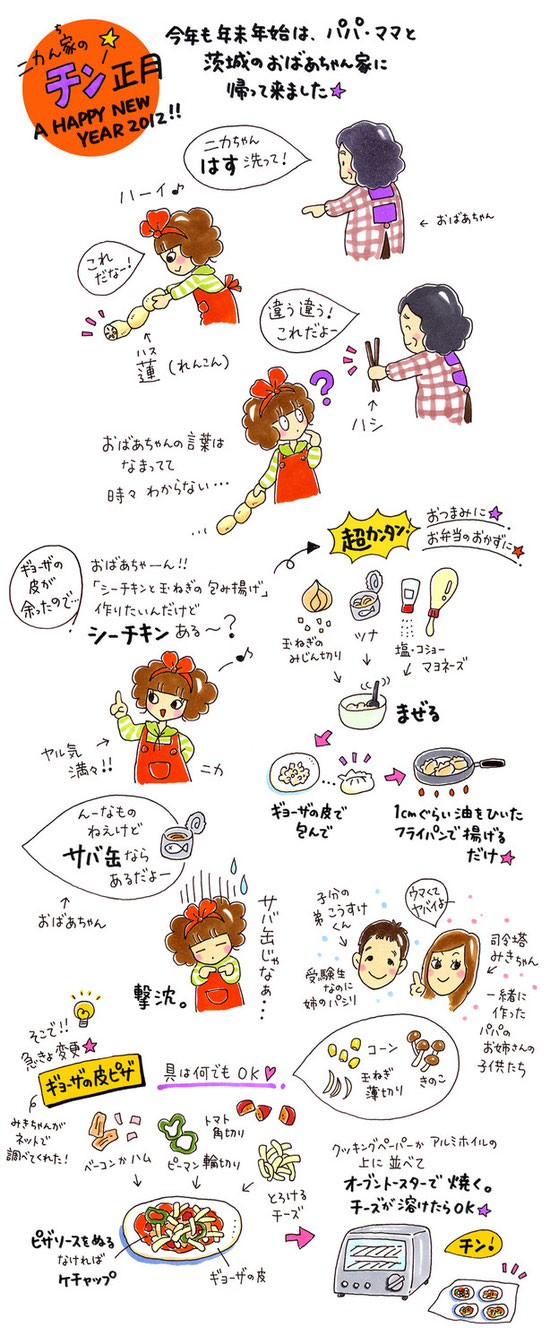 ニカん家の
ち
チン正月
A HAPPY NEW
YEAR 2012!!
今年も年末年始は、パパ・ママと
茨城のおばあちゃん家に
帰って来ました☆
ニカちゃん
はす洗って!
←おばあちゃん
ハーイ♪
これ
だなー!
ハス
蓮(れんこん)
違う違う!
これだよー
ハシ
?
おばあちゃんの言葉は
なまってて
時々わからない…
…
ギョーザの
皮が
余ったので…
おばあちゃーん!!
「シーチキンと玉ねぎの包み揚げ」
作りたいんだけど
シーチキンある〜?
♪
ヤル気
満々!!
ニカ
超カンタン!
おつまみに☆
お弁当のおかずに☆
玉ねぎの
みじん切り
ツナ
塩・コショー
マヨネーズ
まぜる
ギョーザの皮で
包んで
1cmぐらい油をひいた
フライパンで揚げる
だけ☆
んーなもの
ねえけど
サバ缶なら
あるだよー
おばあちゃん
サバ缶じゃなぁ…
撃沈。
子分の
弟こうすけ
くん
受験生
なのに
姉のパシリ
ウマくて
ヤバイよー
司令塔
みきちゃん
一緒に
作った
パパの
お姉さんの
子供たち
そこで!!
急きょ変更☆
ギョーザの皮ピザ
具は何でもOK♡
みきちゃんが
ネットで
調べてくれた!
コーン
玉ねぎ
薄切り
きのこ
ベーコンかハム
ピーマン輪切り
トマト
角切り
とろける
チーズ
ピザソースをぬる
なければ
ケチャップ
ギョーザの皮
クッキングペーパーかアルミホイルの
上に並べて
オーブントースターで焼く。
チーズが溶けたらOK☆
チン!